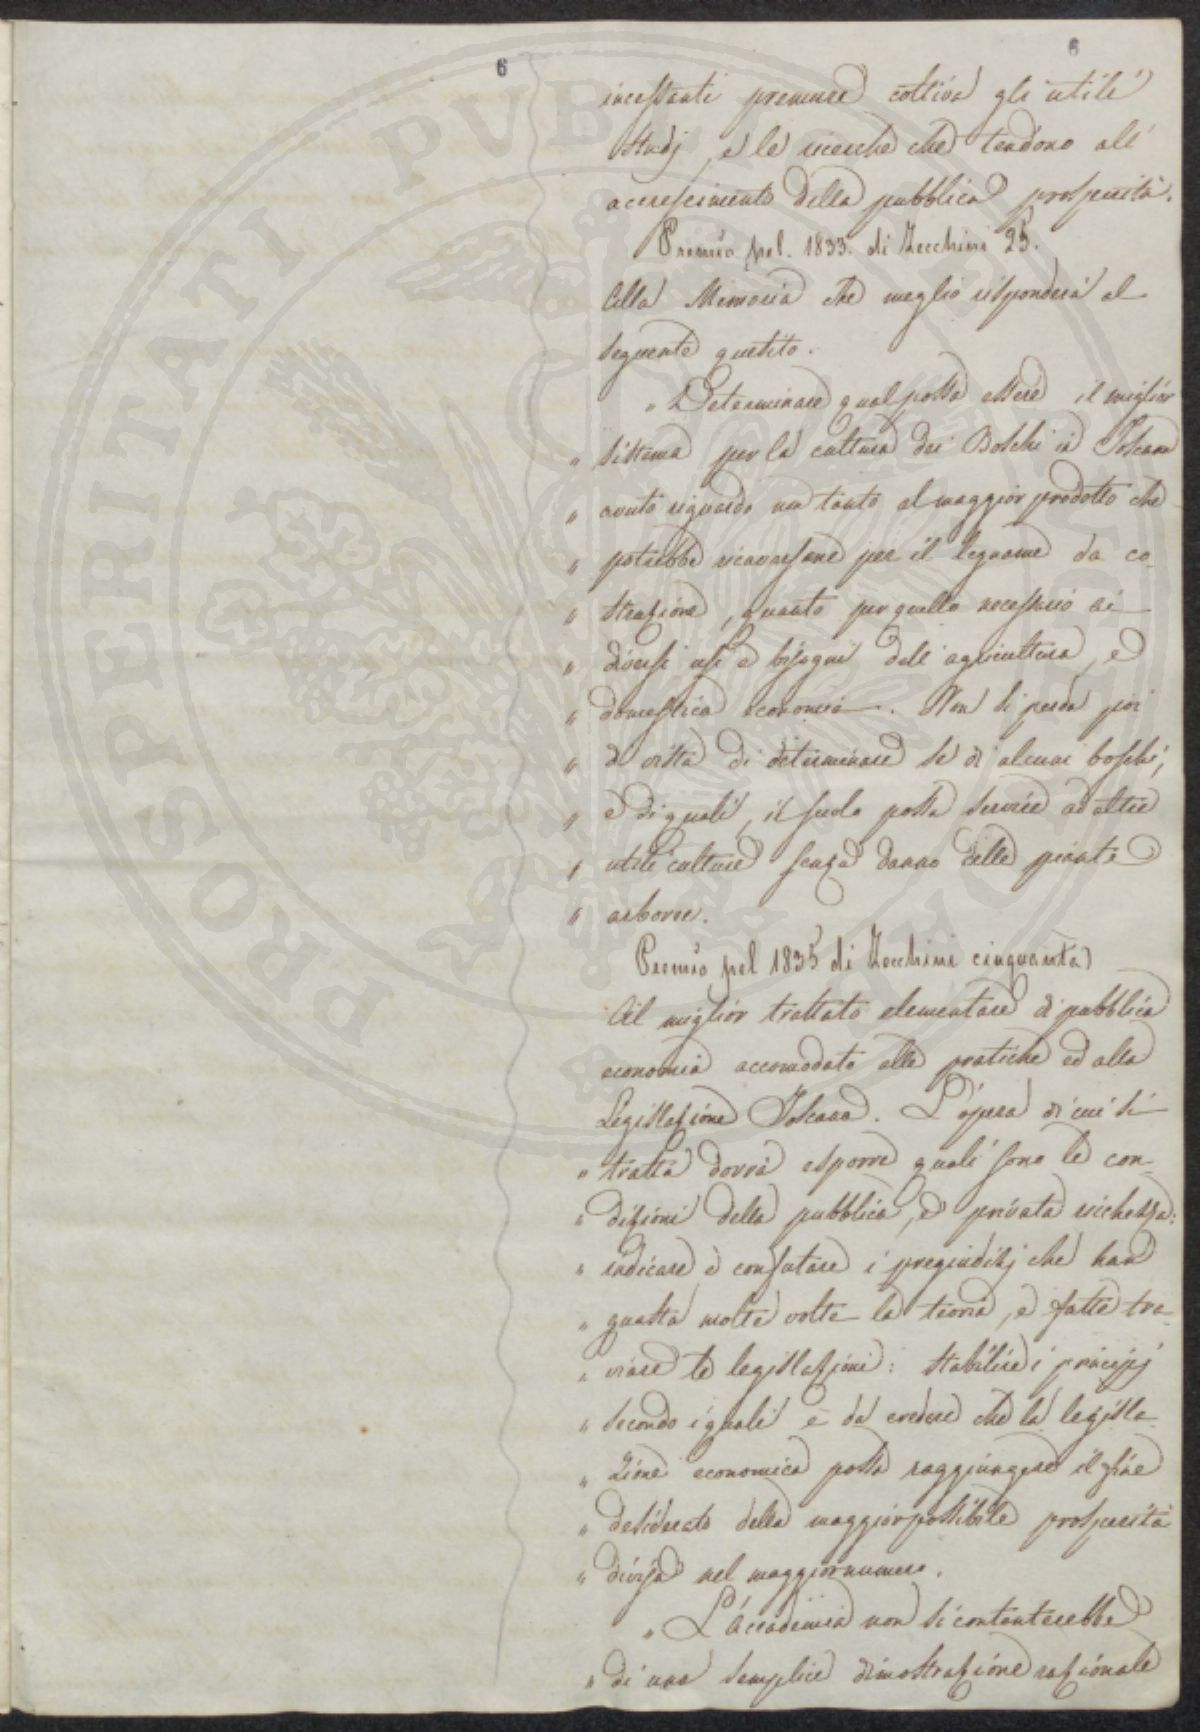 6
6
incessanti premure coltiva gli utili
Studj, e le ricerche che tendono all'
accrescimento della pubblica prosperità.
Premio pel. 1833. di Zecchini 25.
Alla Memoria che meglio risponderà al
seguente quesito.
„ Determinare qual possa essere il miglior
„ sistema per la cultura dei Boschi in Toscana
„ avuto riguardo non tanto al maggior prodotto che
„ potrebbe ricavarsene per il legname da co-
„ struzione, quanto per quello necessario ai
„ diversi usi e bisogni dell'agricultura, e
„ domestica economia. Non si perda poi
„ di vista di determinare se di alcuni boschi,
„ e di quali, il suolo possa servire ad altre
„ utili culture senza danno delle piante
„ arboree.
Premio pel 1835 di Zecchini cinquanta
Al miglior trattato elementare di pubblica
economia accomodato alle pratiche ed alla
Legislazione Toscana. L'opera di cui si
„ tratta dovrà esporre quali sono le con-
„ dizioni della pubblica, e privata ricchezza:
„ indicare e confutare i pregiudizj che han
„ guasta molte volte la teoria, e fatte tra-
„ viare le legislazioni: stabilire i principj
„ secondo i quali è da credere che la legisla-
„ zione economica possa raggiungere il fine
„ desiderato della maggior possibile prosperità
„ divisa nel maggior numero.
„ L'Accademia non si contenterebbe
„ di una semplice dimostrazione razionale
PROSPERITATI PVBLICAE